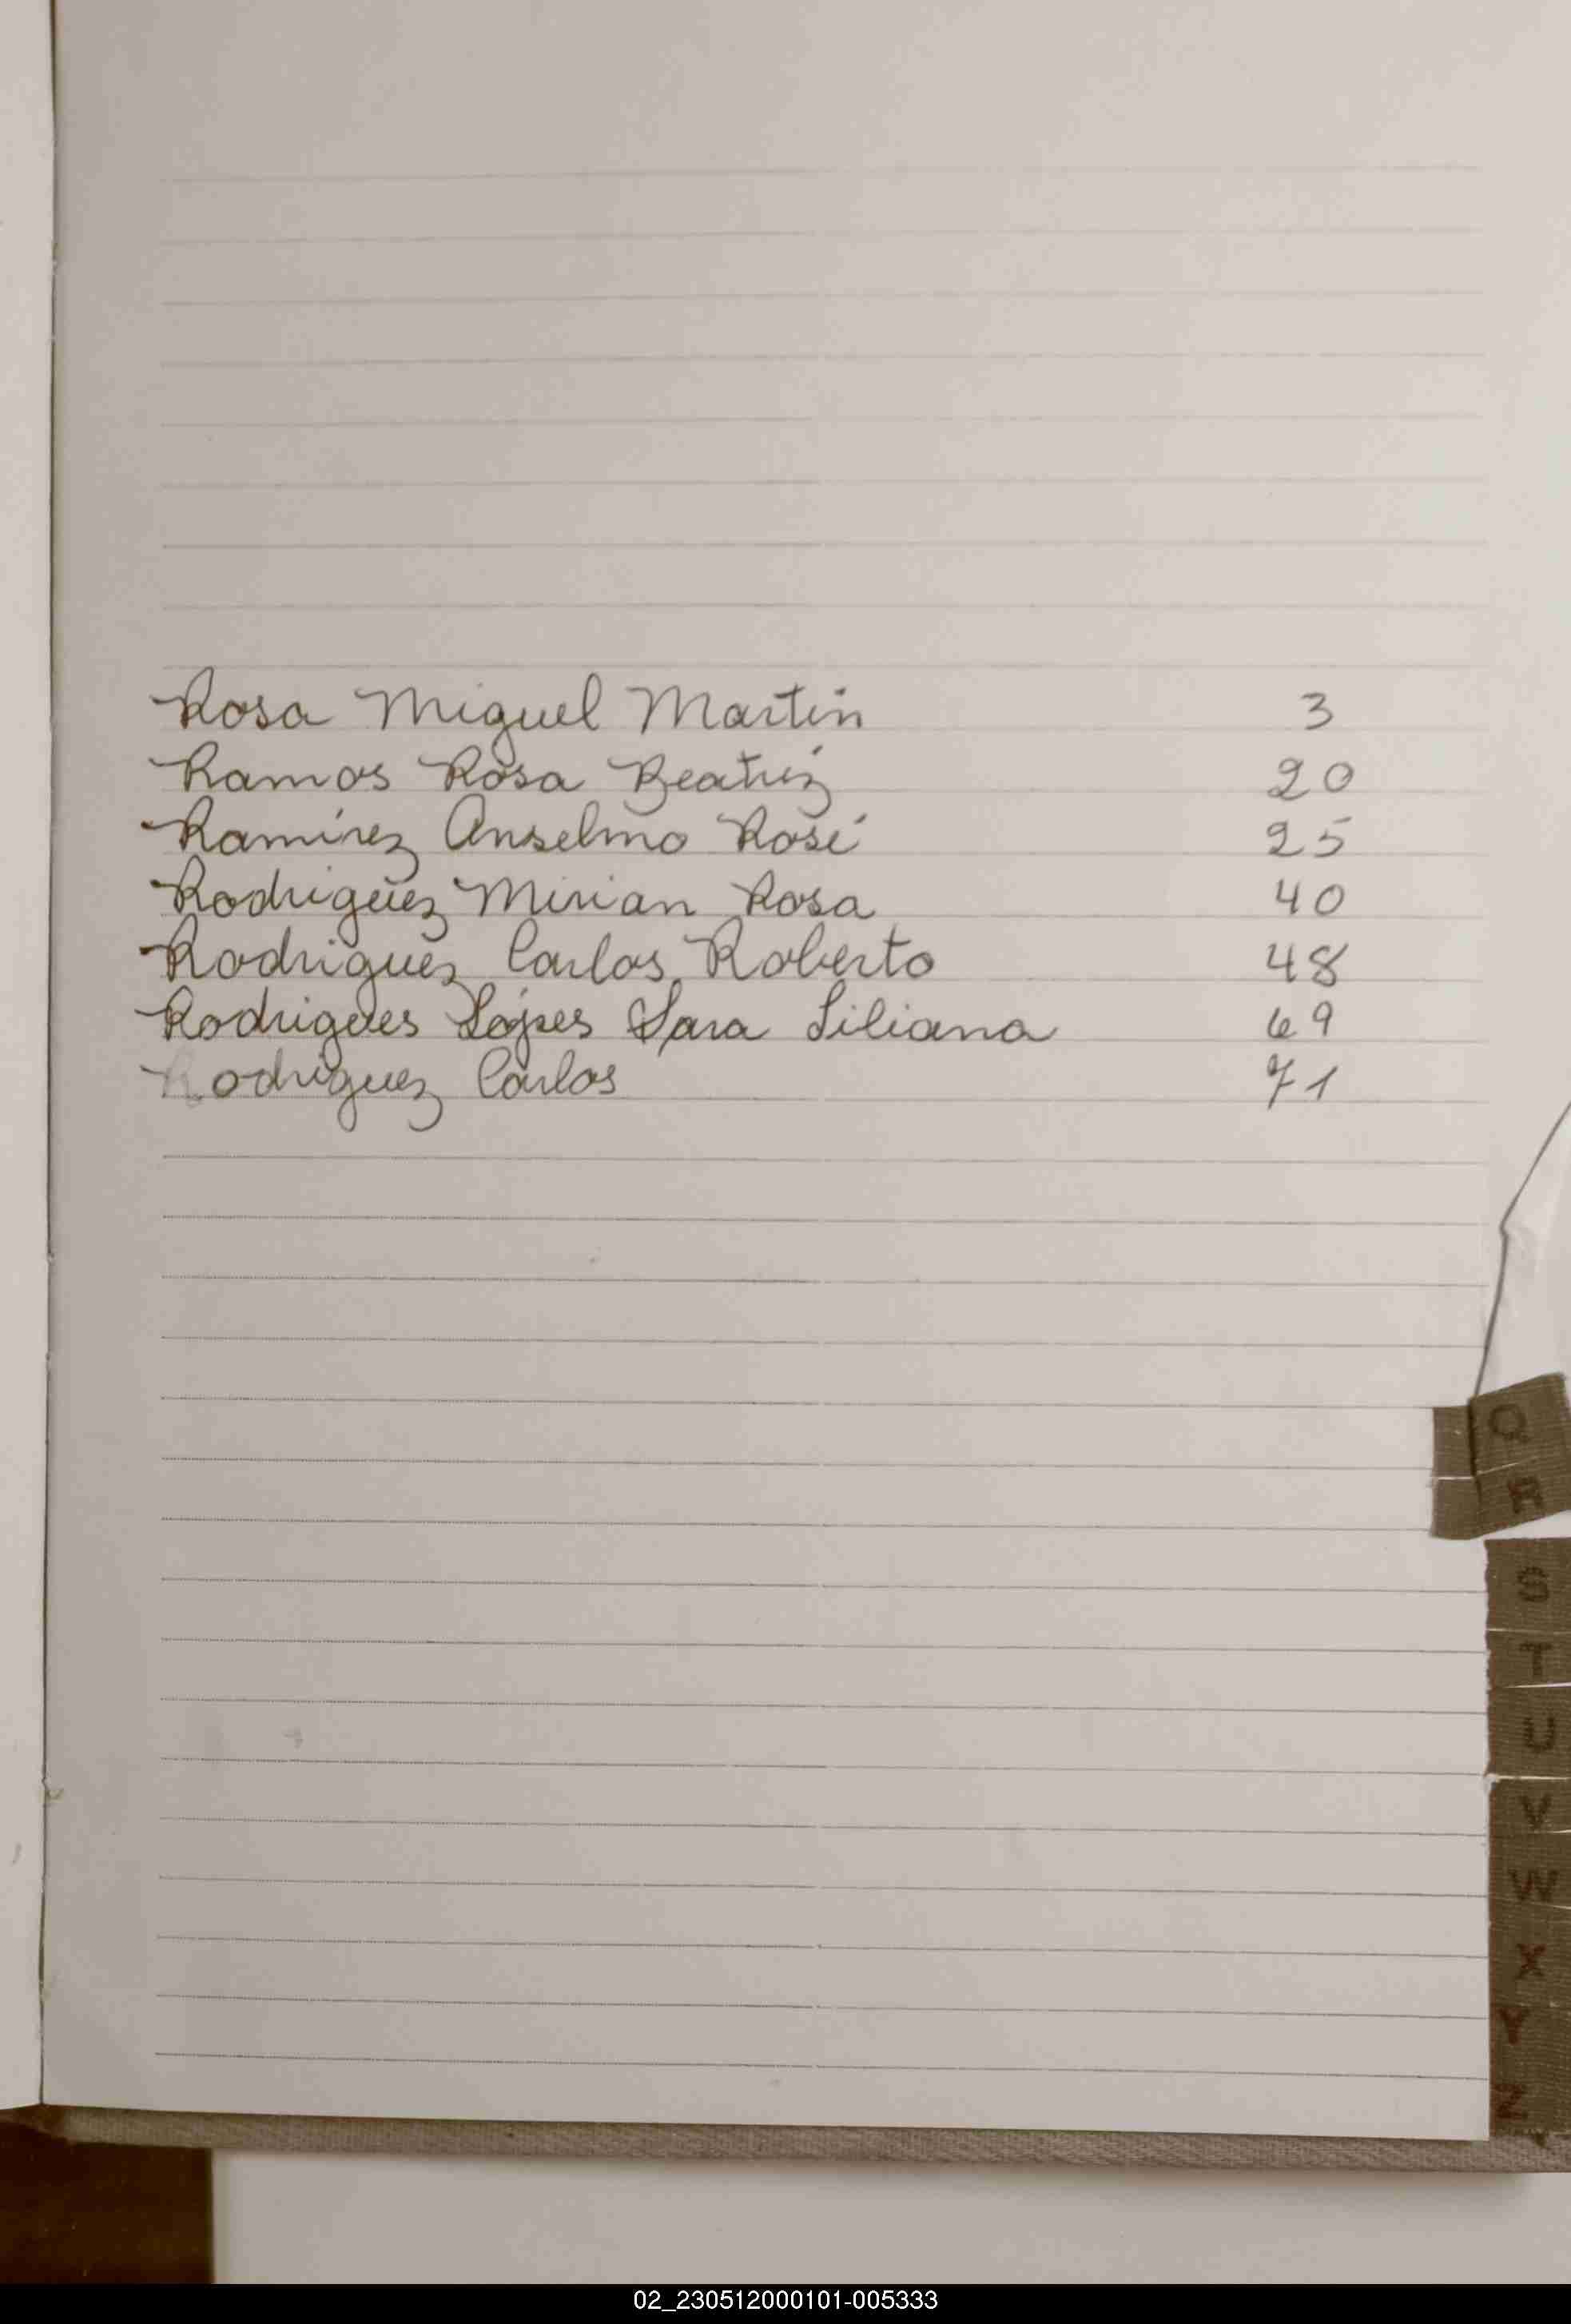 Rosa Miguel Martin 3
Ramos Rosa Beatriz 20
Ramírez Anselmo José 25
Rodriguez Mirian Rosa 40
Rodriguez Carlos Roberto 48
Rodrigues Lópes Sara Liliana 69
Rodriguez Carlos 71
Q
R
S
T
U
V
W
X
Y
Z
02_230512000101-005333